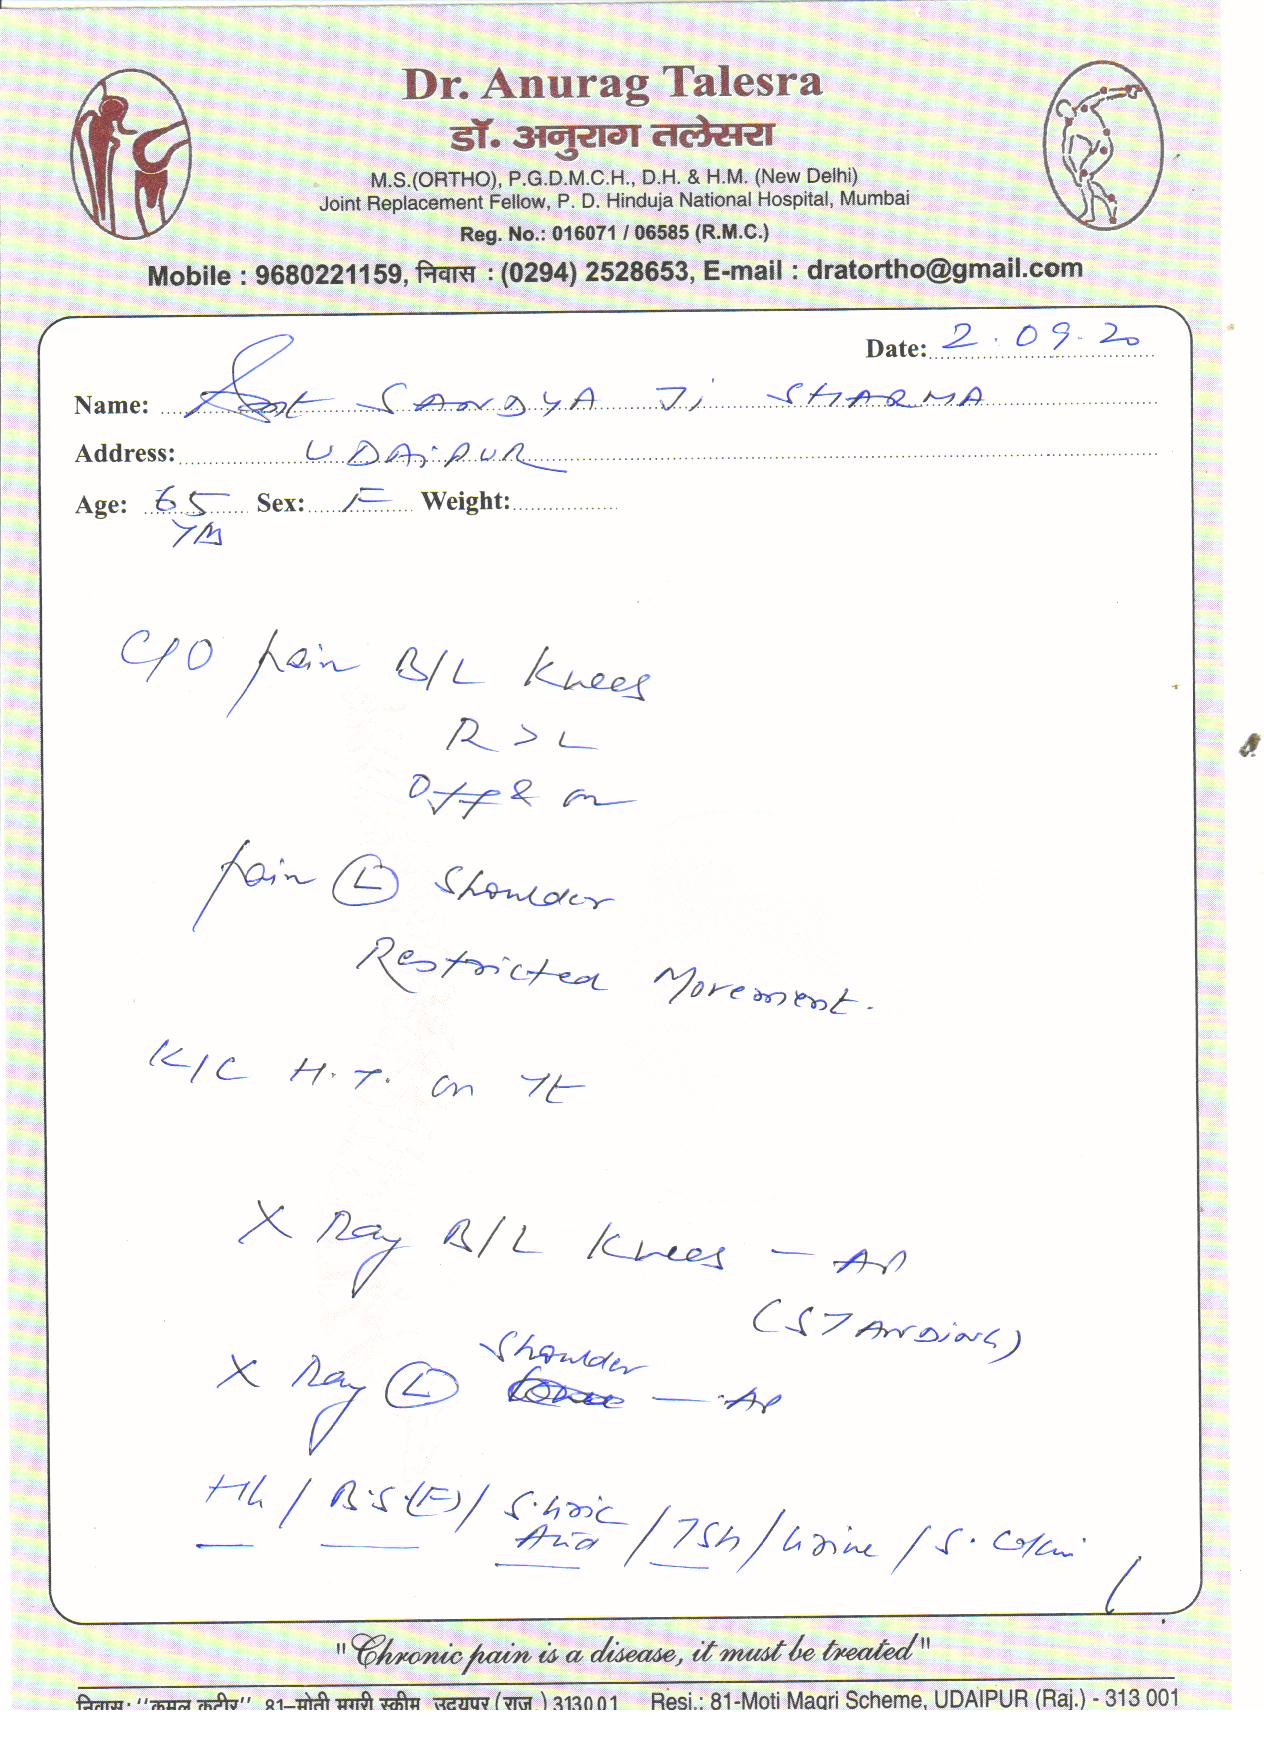 Dr. Anurag Talesra
डॉ. अनुराग तलेसरा
M.S.(ORTHO), P.G.D.M.C.H., D.H. & H.M. (New Delhi)
Joint Replacement Fellow, P. D. Hinduja National Hospital, Mumbai
Reg. No.: 016071 / 06585 (R.M.C.)
Mobile : 9680221159, निवास : (0294) 2528653, E-mail : dratortho@gmail.com
Date: 2.09.20
Name: SANDYA Ji SHARMA
Address: UDAiPUR
Age: 65 Sex: F Weight:
C/O pain B/L Knees
R > L
Off & on
pain (L) Shoulder
Restricted Movement.
K/C H.T. on Tt
X Ray B/L Knees - AP
(STANDiNG)
X Ray (L) Shoulder - AP
Hb / B.S.(F) / S.Uric Acid / TSH / Urine / S.
"Chronic pain is a disease, it must be treated"
निवास: "कमल कुटीर" 81-मोती मगरी स्कीम उदयपुर (राज.) 313001 Resi.: 81-Moti Magri Scheme, UDAIPUR (Raj.) - 313 001